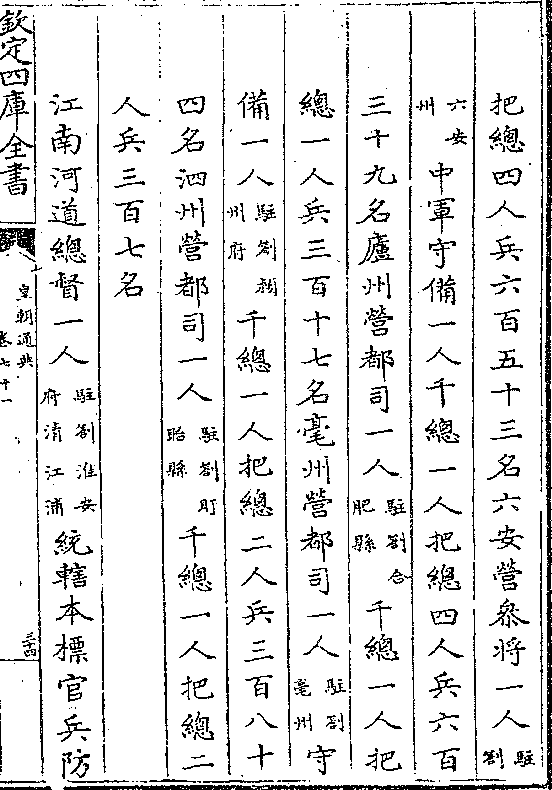 把總四人兵六百五十三名六安營叅將一人駐劄
六安州中軍守備一人千總一人把總四人兵六百
三十九名廬州營都司一人駐劄合肥縣千總一人把
總一人兵三百十七名毫州營都司一人駐劄毫州守
備一人駐劄潁州府千總一人把總二人兵三百八十
四名泗州營都司一人駐劄盱眙縣千總一人把總二
人兵三百七名
江南河道總督一人駐劄淮安府清江浦統轄本標官兵防
欽定四庫全書
皇朝通典
卷七十一
三十四